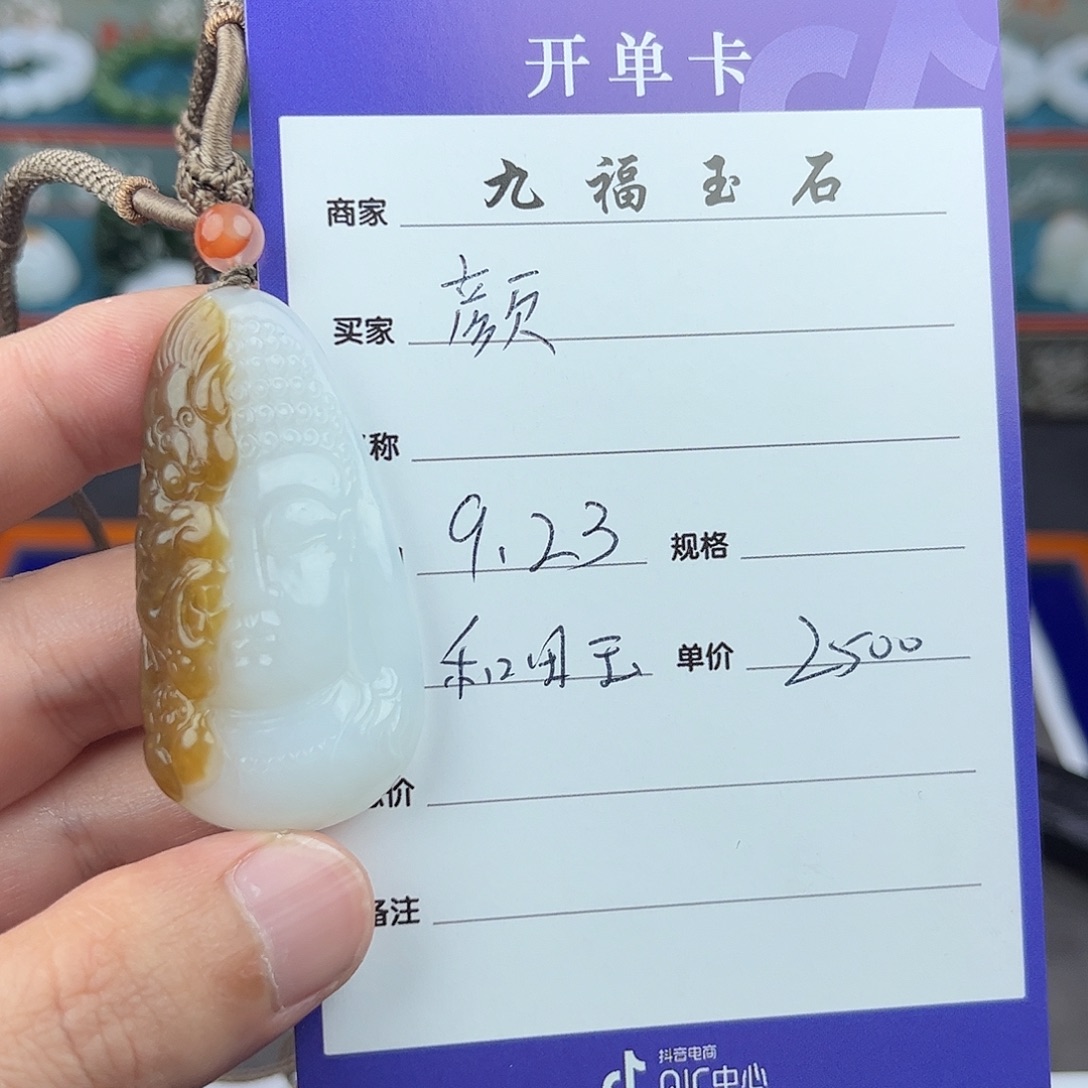 开单卡
商家 九福玉石
买家 颜
称
9.23 规格
和田玉 单价 2500
价
备注
抖音电商
QIC中心